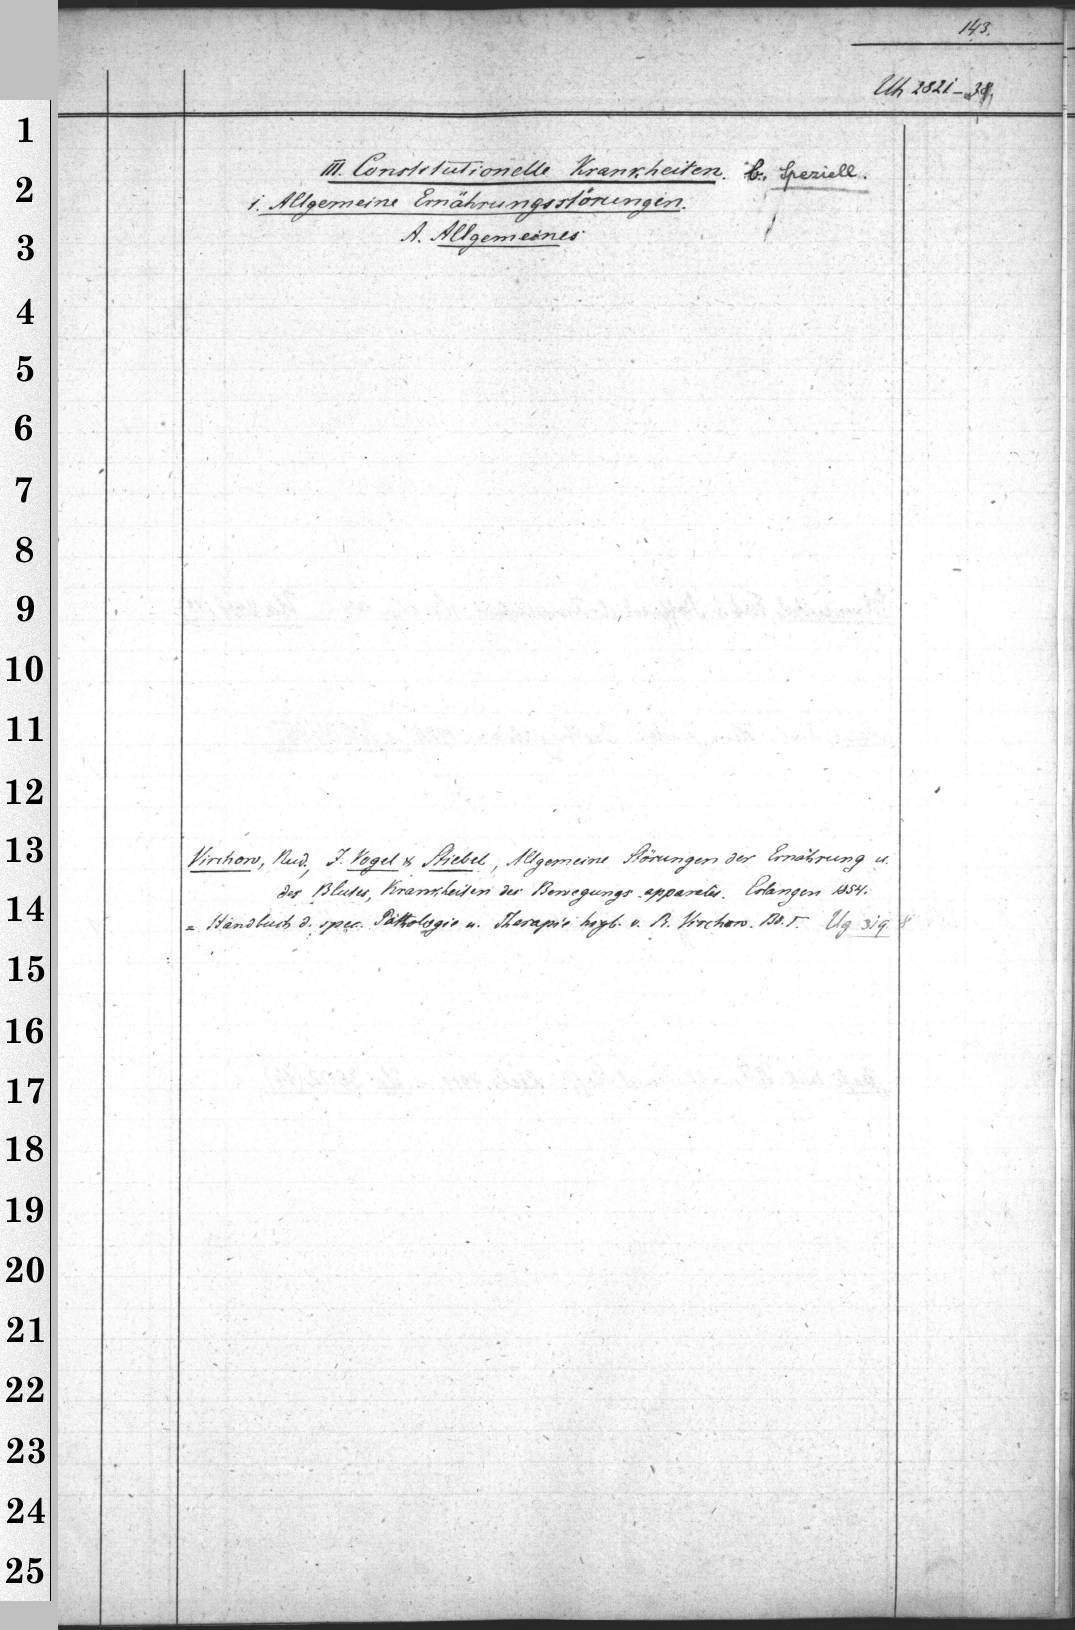 143.
Uh 2821-38,
1
2
3
4
5
6
7
8
9
10
11
12
13
14
15
16
17
18
19
20
21
22
23
24
25
III. Constitutionelle Krankheiten. b. Speziell.
1. Allgemeine Ernährungsstörungen.
A. Allgemeines
Virchow, Rud., J. Vogel & Stiebel, Allgemeine Störungen der Ernährung u.
des Blutes, Krankheiten des Bewegungs-apparates. Erlangen 1854.
= Handbuch d. spec. Pathologie u. Therapie hrgb. v. R. Virchow. Bd. I. Ug 319 8